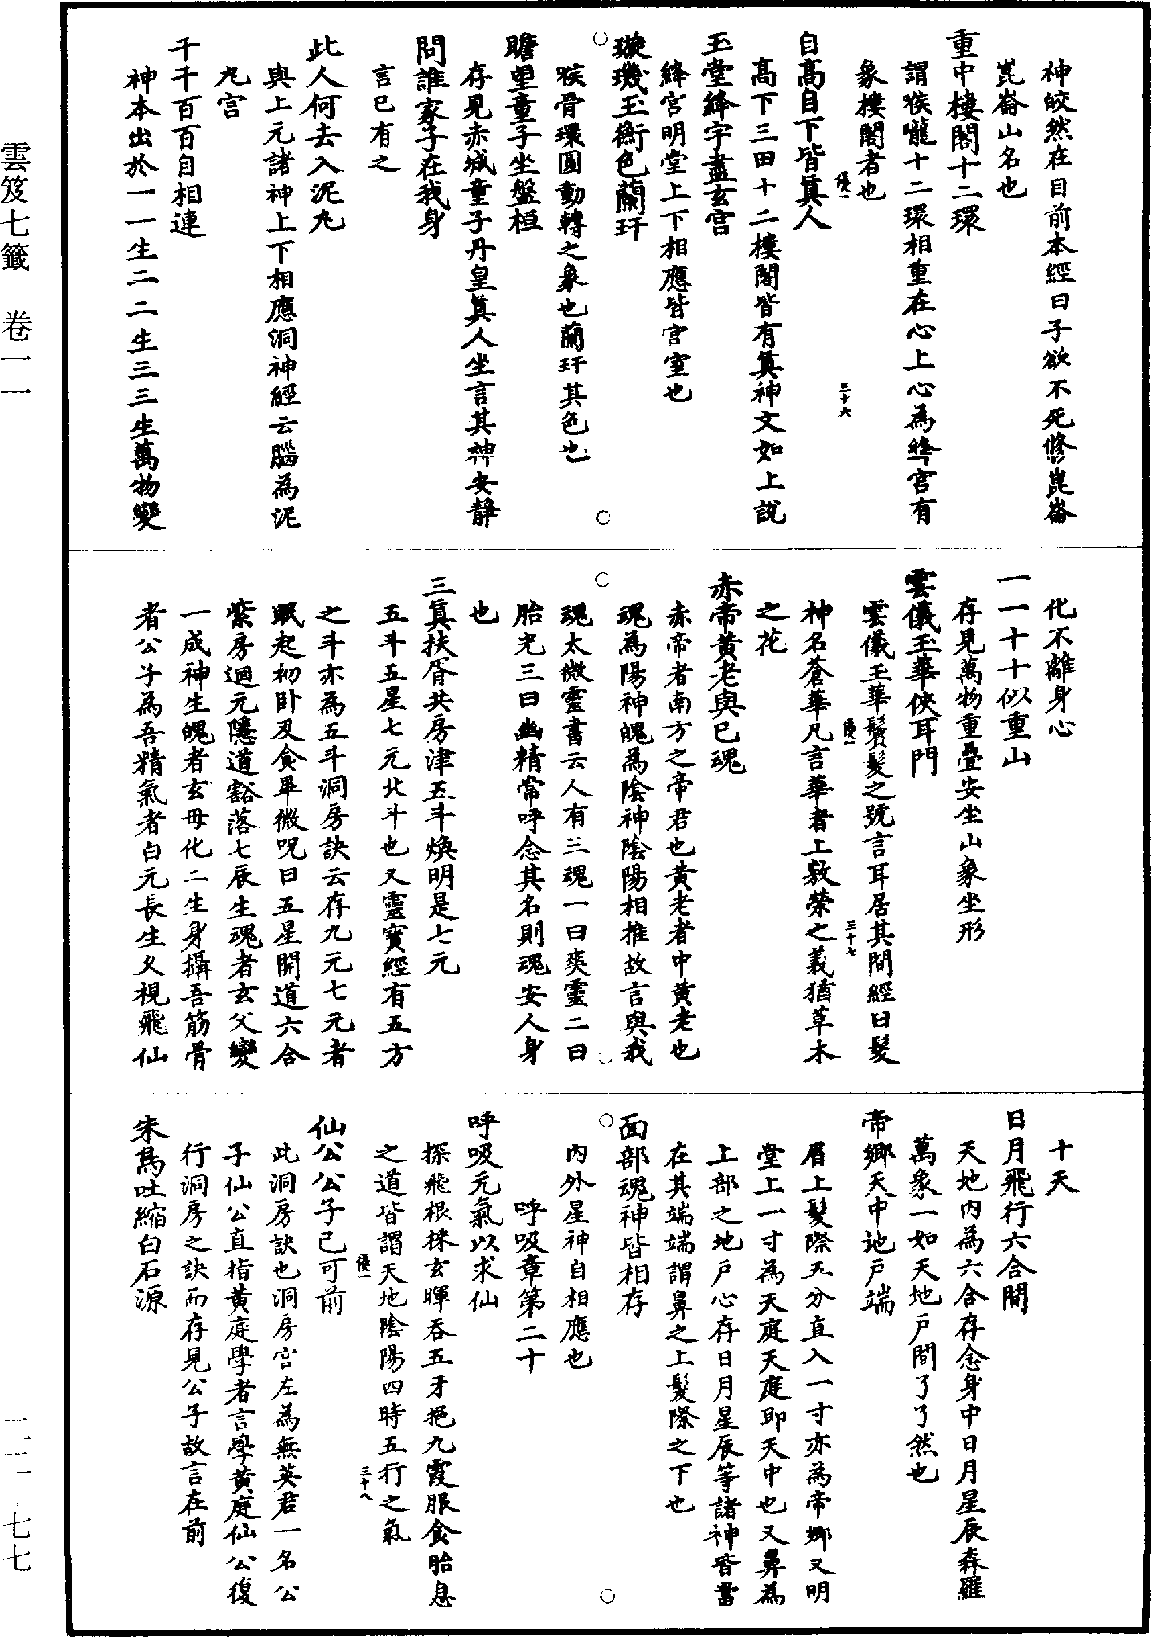 神皎然在目前本經曰子欲不死修崑崙
崑崙山名也
重中樓閣十二環
謂喉嚨十二環相重在心上心為絳宮有
象樓閣者也
三十六
自高自下皆真人
高下三田十二樓閣皆有真神文如上說
玉堂絳宇盡玄宮
絳宮明堂上下相應皆宮室也
璇璣玉衡色蘭玕
喉骨環圓動轉之象也蘭玕其色也
瞻望童子坐盤桓
存見赤城童子丹皇真人坐言其神安靜
問誰家子在我身
言已有之
此人何去入泥丸
與上元諸神上下相應洞神經云腦為泥
丸宮
千千百百自相連
神本出於一一生二二生三三生萬物變
化不離身心
一一十十似重山
存見萬物重疊安坐山象坐形
雲儀玉華俠耳門
雲儀玉華鬢髮之號言耳居其間經曰髮
三十七
神名蒼華凡言華者上敷榮之義猶草木
之花
赤帝黃老與己魂
赤帝者南方之帝君也黃老者中黃老也
魂為陽神魄為陰神陰陽相推故言與我
魂太微靈書云人有三魂一曰爽靈二曰
胎光三曰幽精常呼念其名則魂安人身
也
三真扶胥共房津五斗煥明是七元
五斗五星七元北斗也又靈寶經有五方
之斗亦為五斗洞房訣云存九元七元者
眠起初卧及食畢微咒曰五星開道六合
紫房迴元隱道豁落七辰生魂者玄父變
一成神生魄者玄母化二生身攝吾筋骨
者公子為吾精氣者白元長生久視飛仙
十天
日月飛行六合間
天地內為六合存念身中日月星辰森羅
萬象一如天地戶間了了然也
帝鄉天中地戶端
眉上髮際五分直入一寸亦為帝鄉又明
堂上一寸為天庭天庭即天中也又鼻為
上部之地戶心存日月星辰等諸神皆當
在其端端謂鼻之上髮際之下也
面部魂神皆相存
內外星神自相應也
呼吸章第二十
呼吸元氣以求仙
採飛根採玄暉吞五牙挹九霞服食胎息
之道皆謂天地陰陽四時五行之氣
三十八
仙公公子已可前
此洞房訣也洞房宮左為無英君一名公
子仙公直指黃庭學者言學黃庭仙公復
行洞房之訣而存見公子故言在前
朱鳥吐縮白石源
雲笈七籤 卷一一
二二-七七